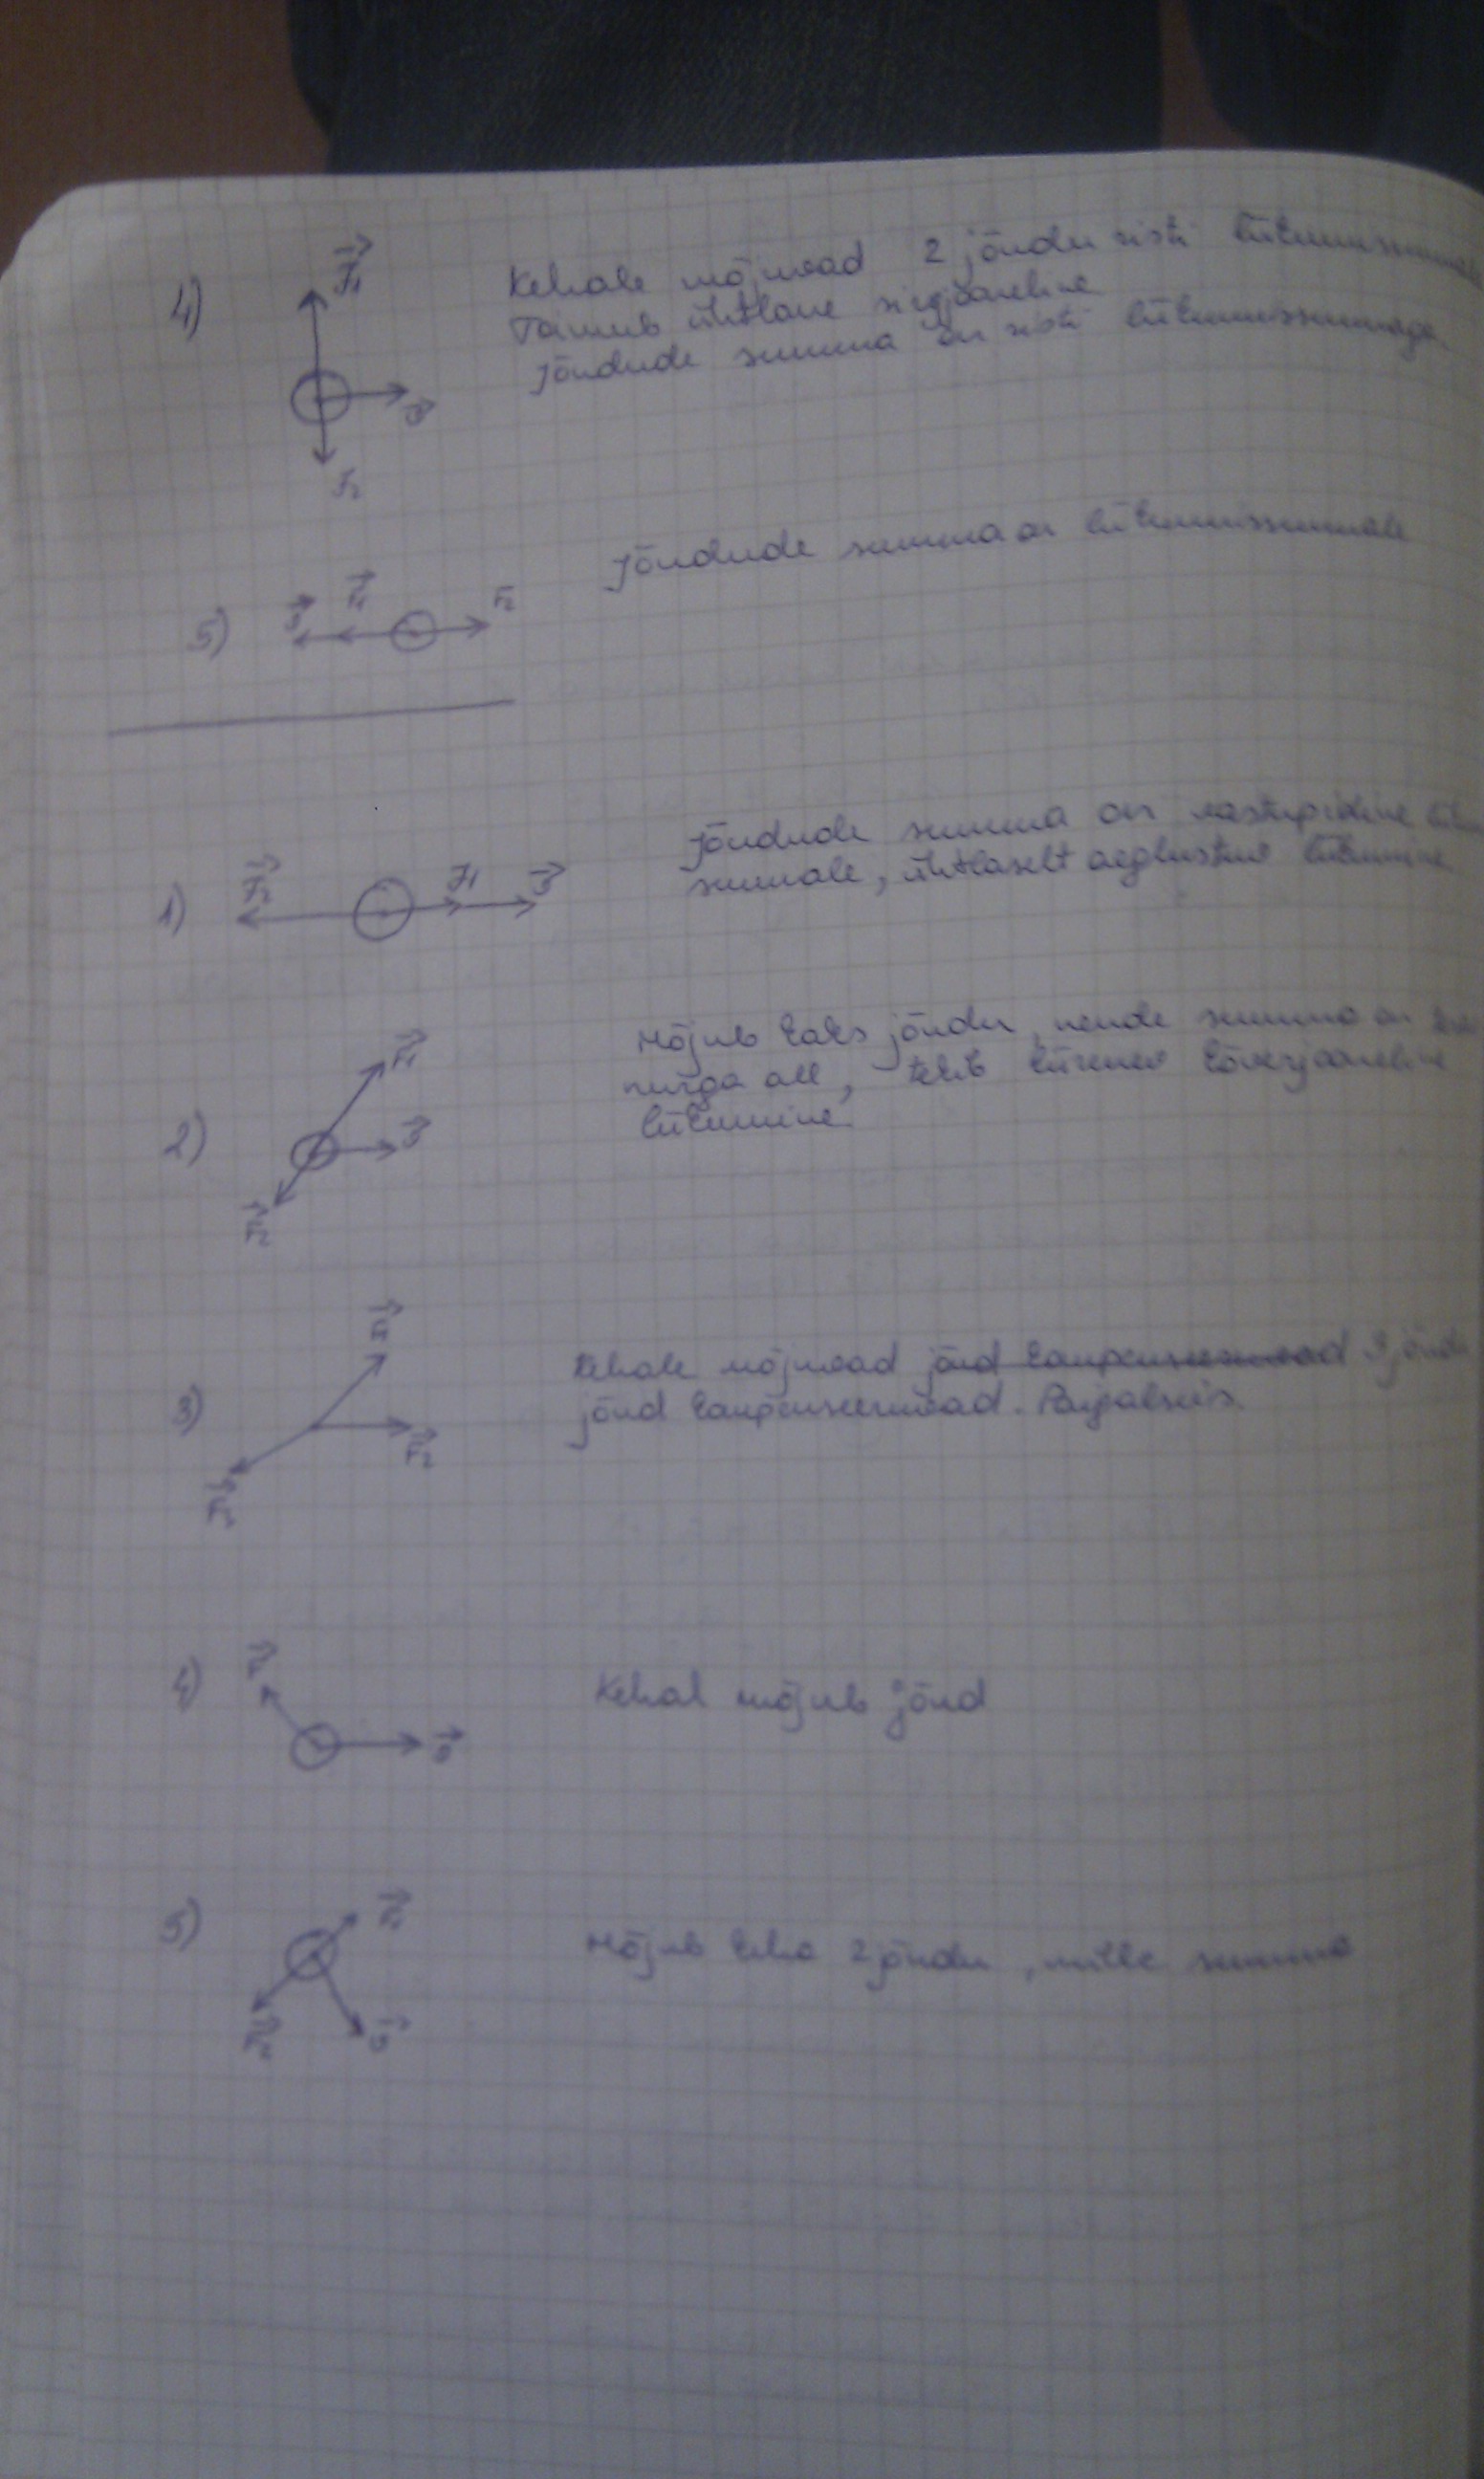 4)
F₁
Kehale mõjuvad 2 jõudu risti liikumissuunale
Toimub ühtlane sirgjooneline
Jõudude summa on risti liikumissuunaga
v
F₂
Jõudude summa on liikumissuunale
5) v F₁ F₂
Jõudude summa on vastupidine
suunale, ühtlaselt aeglustuv liikumine
1) F₂ F₁ v
Mõjub kaks jõudu, nende summa on
nurga all, tekib kiirenev kõverjooneline
liikumine
2) F₁ v F₂
Kehale mõjuvad jõud kompenseeruvad 3 jõudu
jõud kompenseeruvad. Paigalseis.
3) F₂
4) v
Kehal mõjub jõud
5) F₁ v
Mõjub keha 2 jõudu, mille summa